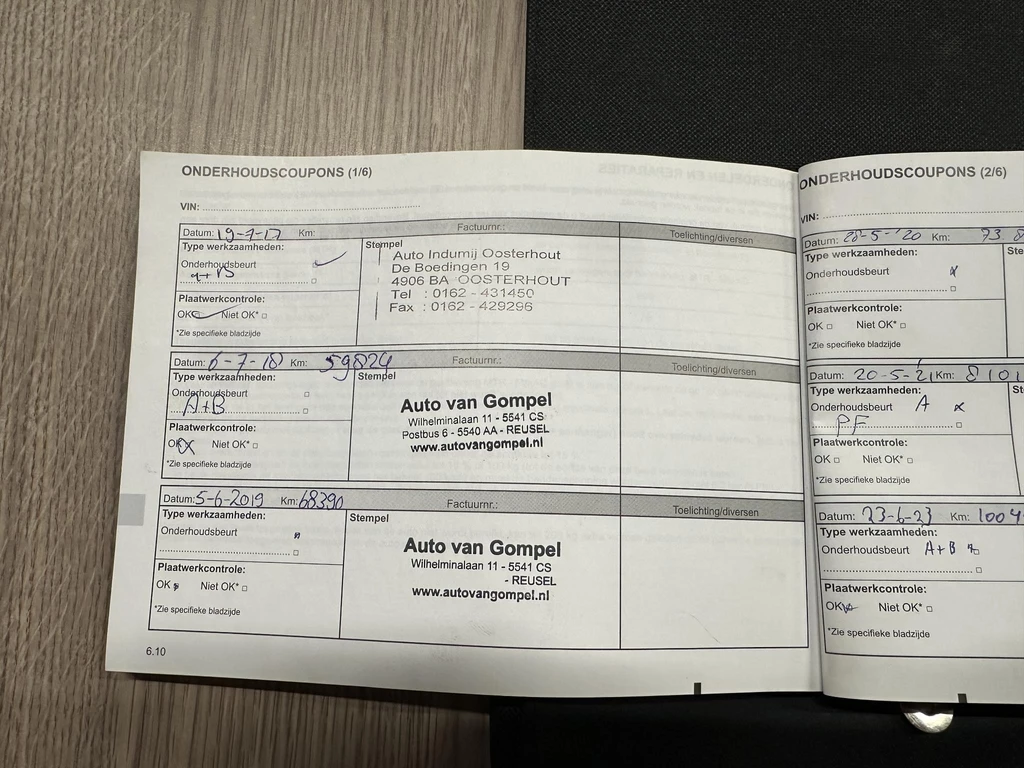 ONDERHOUDSCOUPONS (1/6)
VIN:
Datum: 19-7-17 Km: Factuurnr.: Toelichting/diversen
Type werkzaamheden: Stempel
Onderhoudsbeurt
A+B
Auto Indumij Oosterhout
De Boedingen 19
4906 BA OOSTERHOUT
Tel : 0162 - 431450
Fax : 0162 - 429296
Plaatwerkcontrole:
OK Niet OK*
*Zie specifieke bladzijde
Datum: 6-7-18 Km: 59824 Factuurnr.: Toelichting/diversen
Type werkzaamheden: Stempel
Onderhoudsbeurt
A+B
Auto van Gompel
Wilhelminalaan 11 - 5541 CS
Postbus 6 - 5540 AA - REUSEL
www.autovangompel.nl
Plaatwerkcontrole:
OK X Niet OK*
*Zie specifieke bladzijde
Datum: 5-6-2019 Km: 68390 Factuurnr.: Toelichting/diversen
Type werkzaamheden: Stempel
Onderhoudsbeurt
Auto van Gompel
Wilhelminalaan 11 - 5541 CS
- REUSEL
www.autovangompel.nl
Plaatwerkcontrole:
OK Niet OK*
*Zie specifieke bladzijde
6.10
ONDERHOUDSCOUPONS (2/6)
VIN:
Datum: 28-5-'20 Km: 73 8
Type werkzaamheden: Ste
Onderhoudsbeurt x
Plaatwerkcontrole:
OK Niet OK*
*Zie specifieke bladzijde
Datum: 20-5-21 Km: 8101
Type werkzaamheden: St
Onderhoudsbeurt A x
PF
Plaatwerkcontrole:
OK Niet OK*
*Zie specifieke bladzijde
Datum: 23-6-23 Km: 1004
Type werkzaamheden:
Onderhoudsbeurt A+B
Plaatwerkcontrole:
OK Niet OK*
*Zie specifieke bladzijde